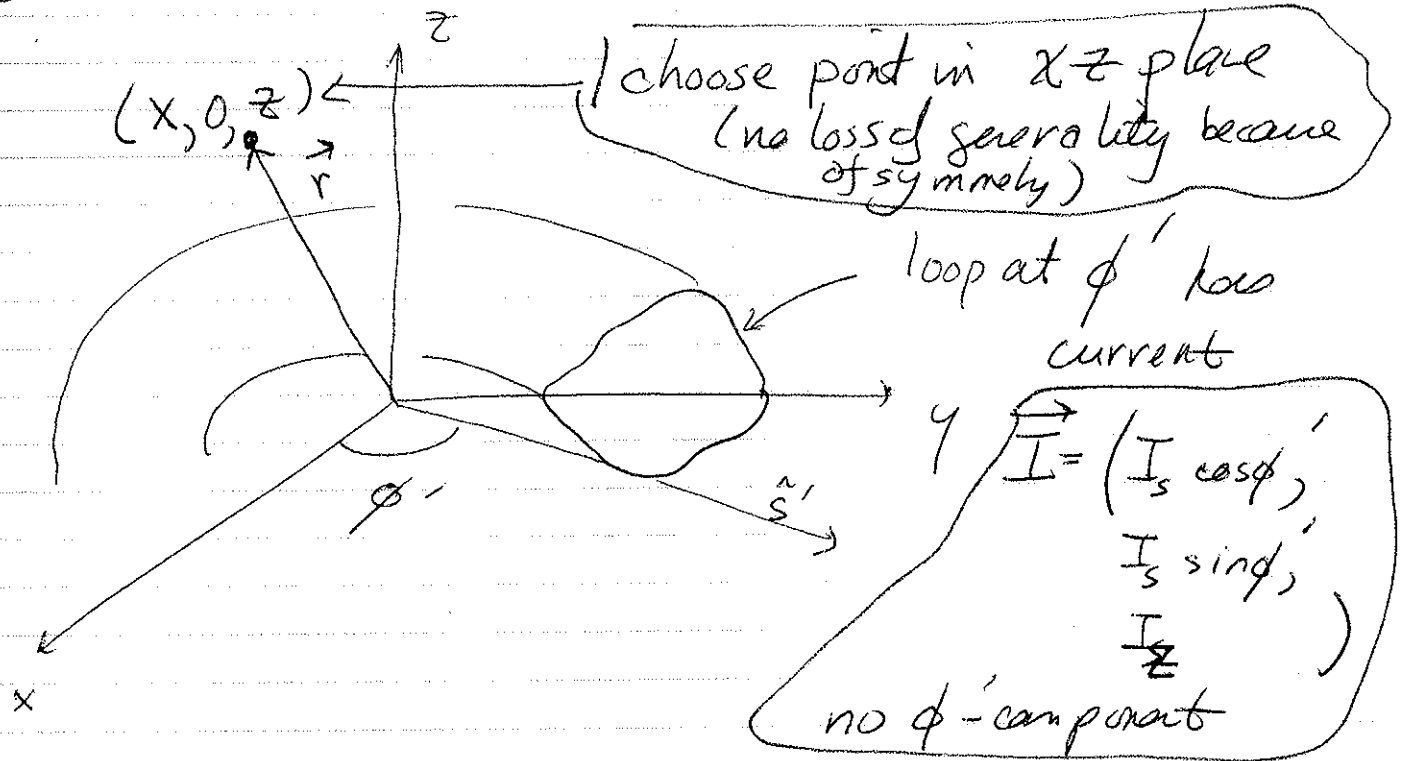 z
choose point in xz plane
(x, 0, z)
(no loss of generality because
of symmetry)
r⃗
loop at ϕ′ has
current
y
I⃗ = (I_s cosϕ′,
I_s sinϕ′,
I_z)
ϕ′
ŝ′
x
no ϕ′-component